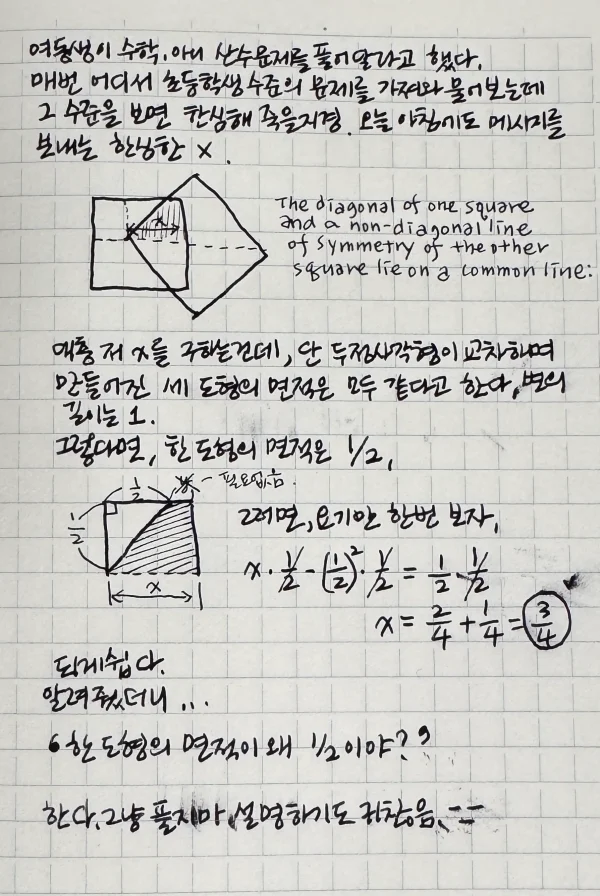 여동생이 수학, 아니 산수문제를 풀어달라고 했다.
매번 어디서 초등학생수준의 문제를 가져와 물어보는데
그 수준을 보면 한심해 죽을지경. 오늘 아침에도 메시지를
보내는 한심한 X.
x
The diagonal of one square
and a non-diagonal line
of symmetry of the other
square lie on a common line:
저 x를 구하는건데, 단 두정사각형이 교차하며
만들어진 세 도형의 면적은 모두 같다고 한다, 변의
길이는 1.
그렇다면, 한 도형의 면적은 1/2,
1/2 y - 필요없음.
1/2
x
그러면, 요기만 한번 보자,
x · 1/2 - (1/2)² · 1/2 = 1/2 · 1/2
x = 2/4 + 1/4 = 3/4
되게쉽다.
알려줬더니 ...
‘한 도형의 면적이 왜 1/2이야?’
한다. 그냥 풀지마, 설명하기도 귀찮음. --